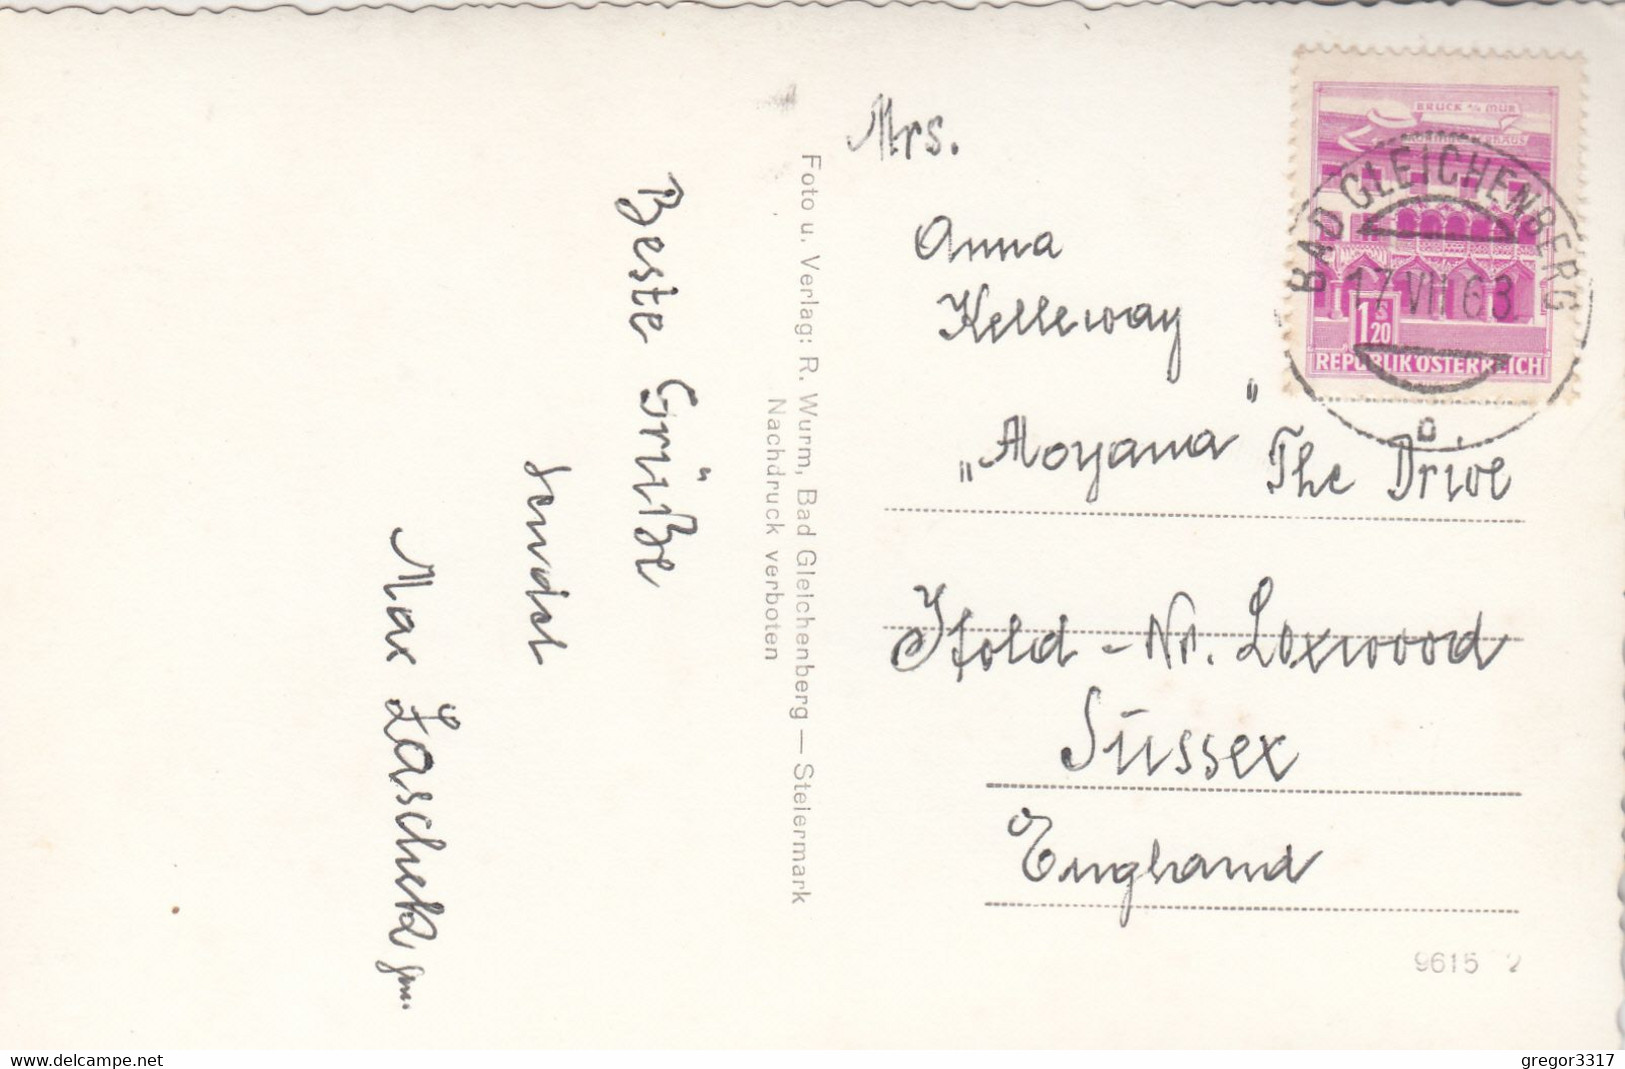 Beste Grüße
sendet
Max Laschek jun.
Foto u. Verlag: R. Wurm, Bad Gleichenberg — Steiermark
Nachdruck verboten
Mrs.
Anna
Kelleway
„Aloyama" The Drive
Ifold - Nr. Loxwood
Sussex
England
BRUCK A/D MUR
REPUBLIK ÖSTERREICH
1 S 20
BAD GLEICHENBERG
17 VII 63
9615 2
delcampe.net
gregor3317